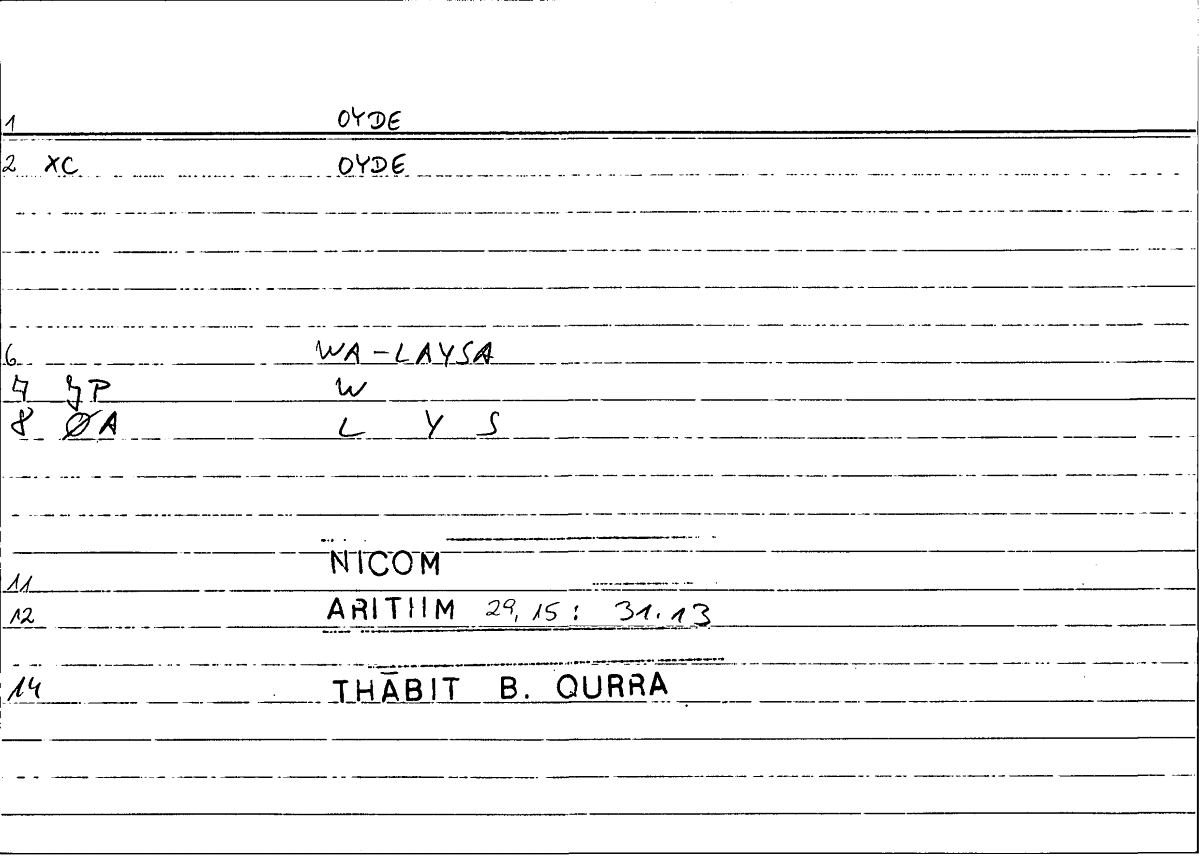 1 OYDE
2 XC OYDE
6 WA-LAYSA
7 JP W
8 ØA L Y S
NICOM
11
12 ARITHM 29,15 : 31.13
14 THĀBIT B. QURRA